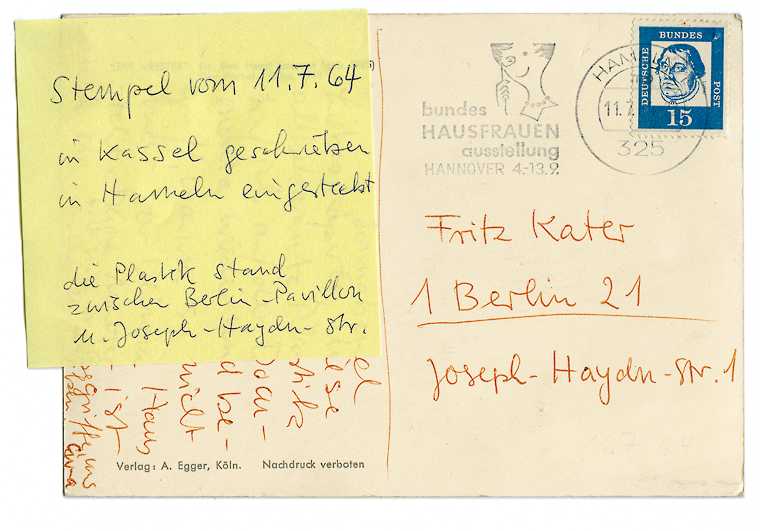 Stempel vom 11.7.64
in Kassel geschrieben
in Hameln eingesteckt
die Plastik stand
zwischen Berlin-Pavillon
u. Joseph-Haydn-Str.
bundes
HAUSFRAUEN
ausstellung
HANNOVER 4.-13.9.
HAM
11.7.
325
DEUTSCHE
BUNDES
POST
15
Fritz Kater
1 Berlin 21
Joseph-Haydn-Str. 1
nicht
Haus
ist
Verlag: A. Egger, Köln. Nachdruck verboten
11.7.64